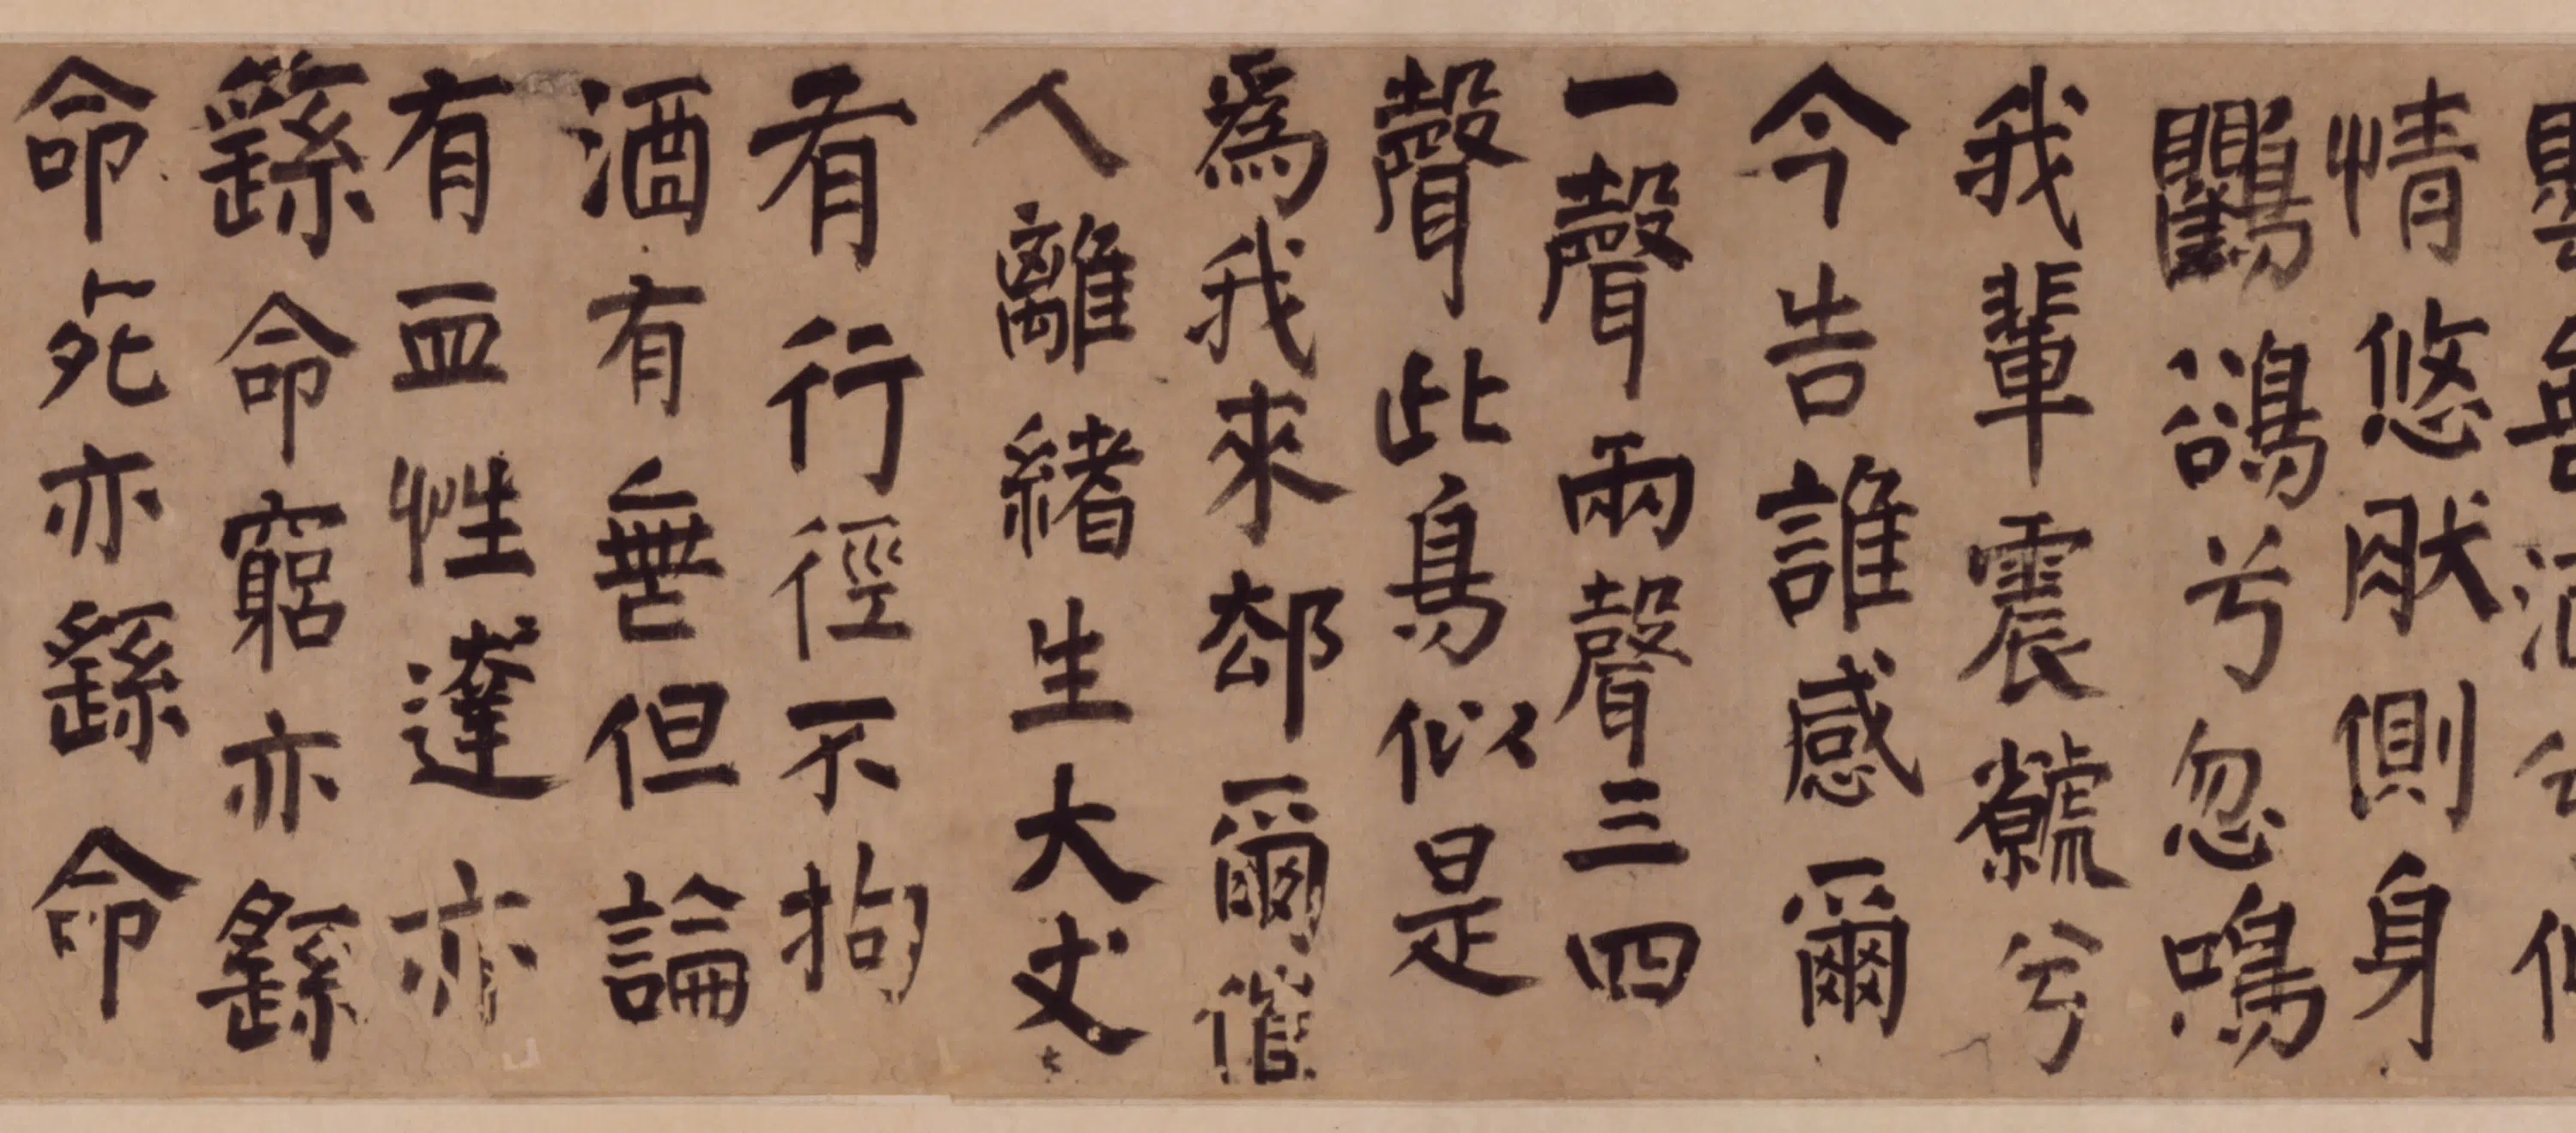 情悠肰側身
鸜鵒兮忽鳴
我輩震虩兮
今告誰感爾
一聲兩聲三四
聲此鳥似是
爲我來郄爾催
人離緒生大丈
有行徑不拘
酒有無但論
有血性達亦
繇命窮亦繇
命死亦繇命